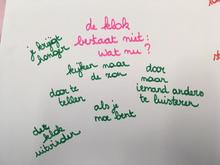 de klok
bestaat niet:
wat nu?
je krijgt
honger
kijken naar
de zon
door
naar
iemand anders
te luisteren
door te
tellen
als je
moe bent
de
klok
uitvinden